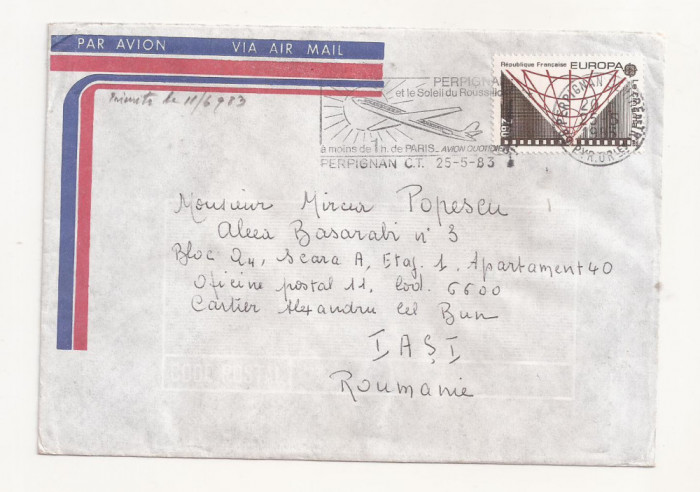 PAR AVION VIA AIR MAIL
le 11/6 983
République Française EUROPA
2.60
PERPIGNAN
et le Soleil du Roussillon
à moins de 1 h. de PARIS_AVION QUOTIDIEN
PERPIGNAN C.T. 25-5-83
PERPIGNAN
PYR. ORIENTALES
Monsieur Mircea Popescu
Aleea Basarabi n° 3
Bloc Q4, Scara A, Etaj. 1, Apartament 40
Oficine postal 11, Cod. 6600
Cartier Alexandru cel Bun
IAŞI
CODE POSTAL
Roumanie